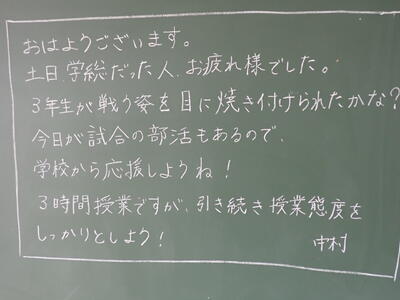 おはようございます。
土日、学総だった人、お疲れ様でした。
3年生が戦う姿を目に焼き付けられたかな?
今日が試合の部活もあるので、
学校から応援しようね!
3時間授業ですが、引き続き授業態度を
しっかりとしよう!
中村